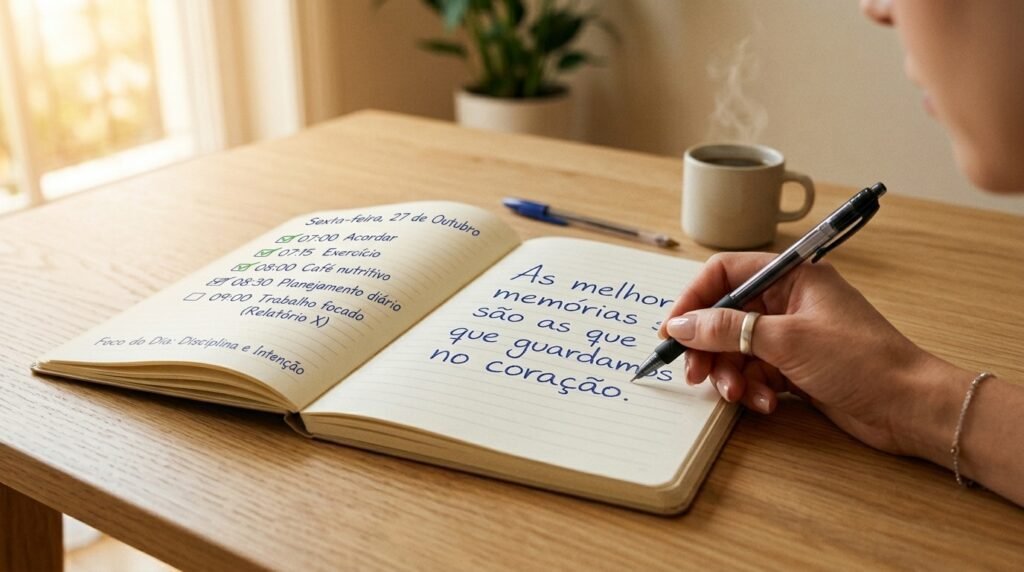 Sexta-feira, 27 de Outubro
07:00 Acordar
07:15 Exercício
08:00 Café nutritivo
08:30 Planejamento diário
09:00 Trabalho focado
(Relatório X)
Foco do Dia: Disciplina e Intenção
As melhor
memórias s
são as que
que guardamos
no coração.